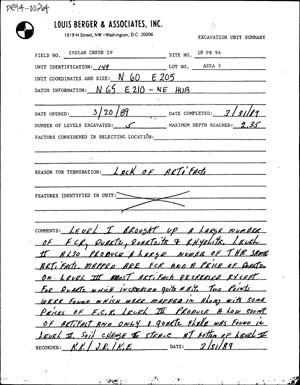 DR94-00264
LOUIS BERGER & ASSOCIATES, INC.
1819 H Street, NW • Washington, D.C. 20006
EXCAVATION UNIT SUMMARY
FIELD NO. INDIAN CREEK IV SITE NO. 18 PR 94
UNIT IDENTIFICATION: 149 LOT NO. AREA 3
UNIT COORDINATES AND SIZE: N 60 E 205
DATUM INFORMATION: N 65 E 210 - NE HUB
DATE OPENED: 3/20/89 DATE COMPLETED: 3/31/89
NUMBER OF LEVELS EXCAVATED: 5 MAXIMUM DEPTH REACHED: 2.35
FACTORS CONSIDERED IN SELECTING LOCATION:
REASON FOR TERMINATION: Lack of Artifacts
FEATURES IDENTIFIED IN UNIT:
COMMENTS: Level I brought up a large number
of FCR, Quartz, Quartzite & Rhyolite. Level
II also produce a large number of the same
artifacts. Mapped are FCR and a piece of Quartz
on Level III most artifact decreased except
for quartz which increased quite a bit. Two points
were found which were mapped in along with some
pieces of F.C.R. Level IV produce a low count
of artifact and only 1 quartz flake was found in
Level V. Soil change to steric at bottom of Level V
RECORDER: K.K/J.R./K.E. DATE: 3/31/89